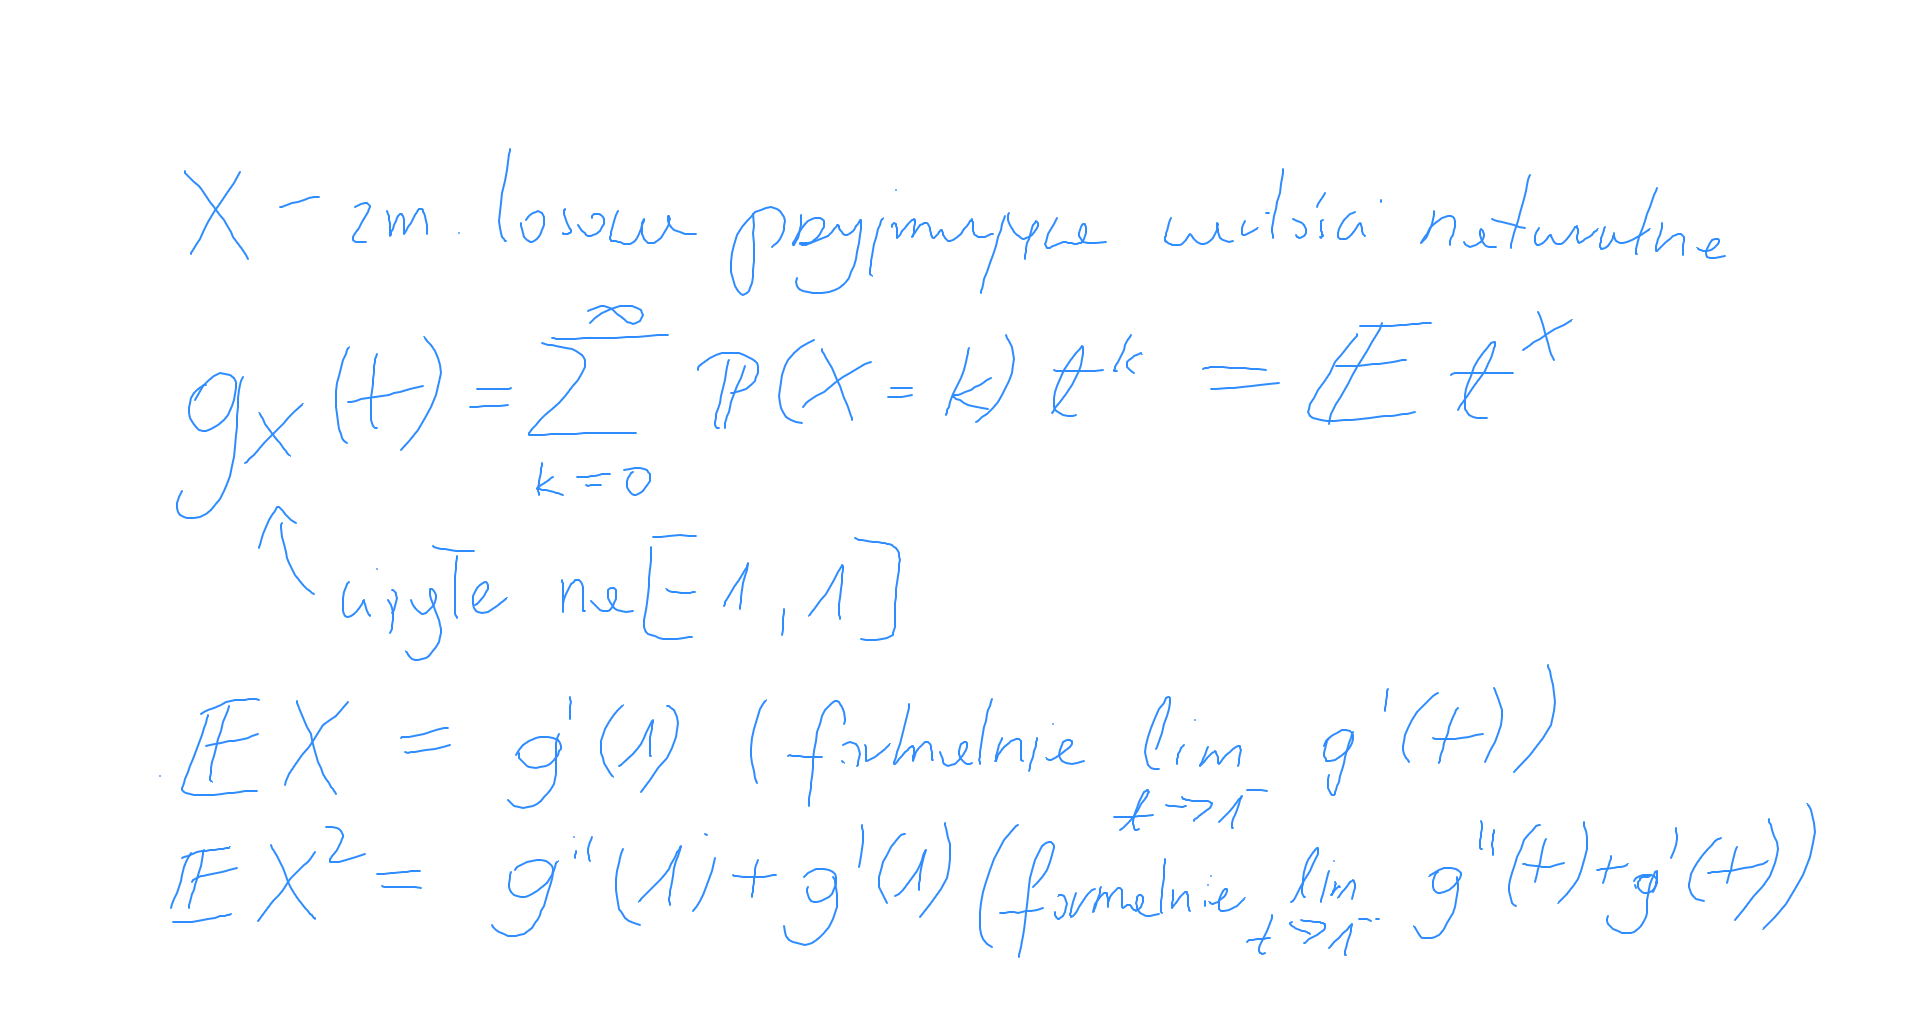 X - zm. losowa przyjmująca wartości naturalne
g_X(t) = \sum_{k=0}^{\infty} ℙ(X = k) t^k = 𝔼 t^X
ciągła na [-1, 1]
𝔼X = g'(1) (formalnie lim_{t→1^-} g'(t))
𝔼X^2 = g''(1) + g'(1) (formalnie lim_{t→1^-} g''(t) + g'(t))